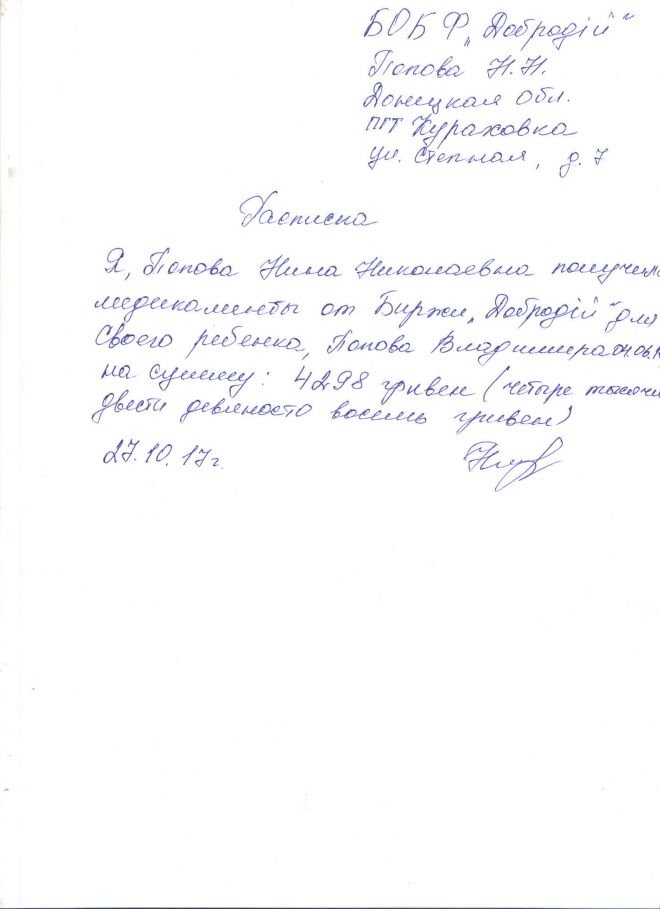 БОБФ „Добродій“
Попова Н.Н.
Донецкая обл.
пгт Кураховка
ул. Степная, д. 7
Расписка
Я, Попова Нина Николаевна получила
медикаменты от Биржи „Добродій“ для
своего ребенка, Попова Владимира 04.06.
на сумму: 4298 гривен (четыре тысячи
двести девяносто восемь гривен)
27.10.17г.